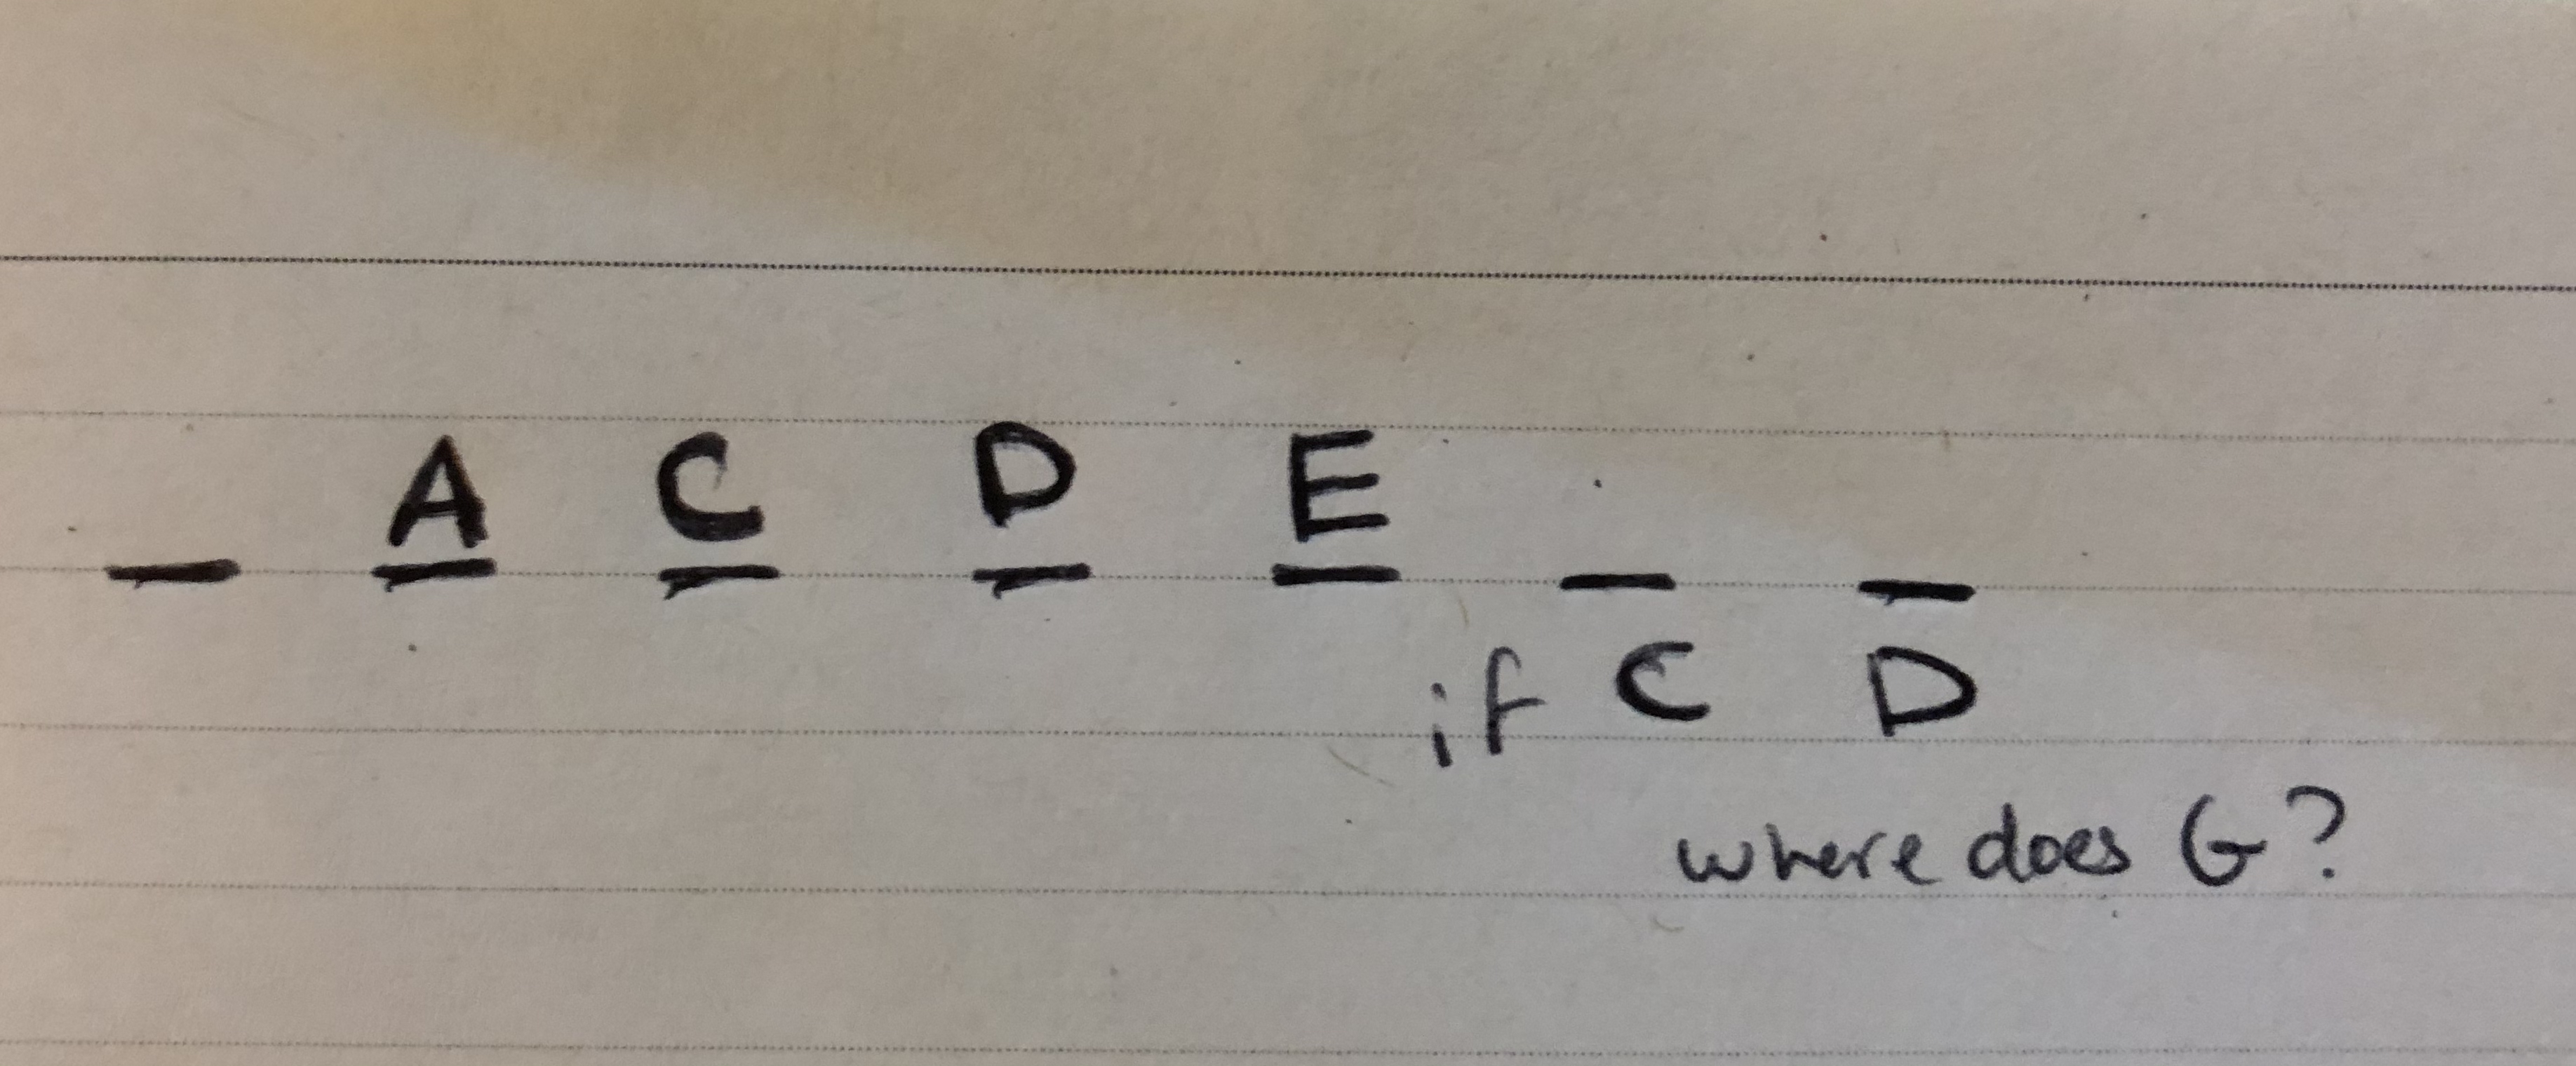 _ A C D E _ _
if C D
where does G?